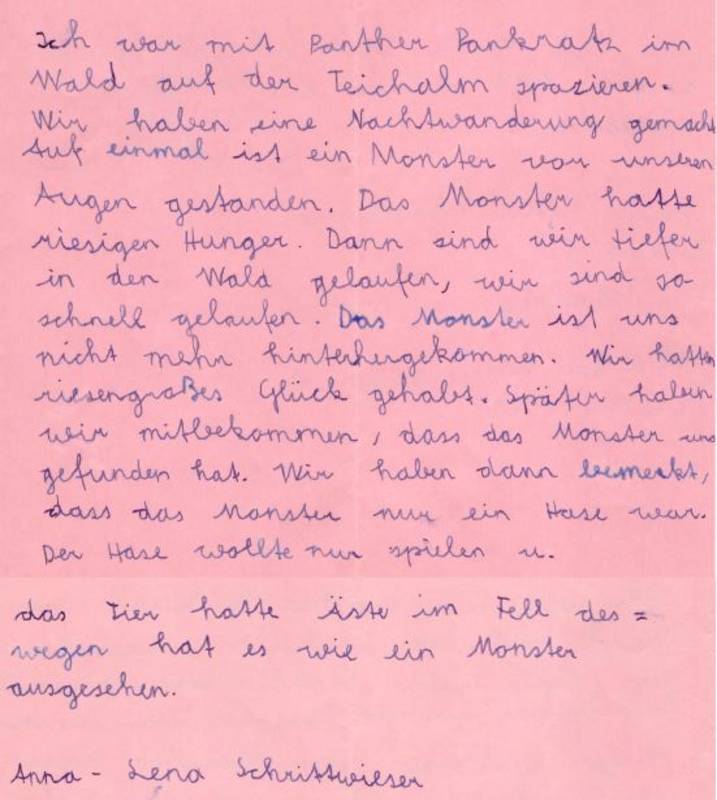 Ich war mit Panther Pankratz im
Wald auf der Teichalm spazieren.
Wir haben eine Nachtwanderung gemacht
Auf einmal ist ein Monster vor unseren
Augen gestanden. Das Monster hatte
riesigen Hunger. Dann sind wir tiefer
in den Wald gelaufen, wir sind so
schnell gelaufen. Das Monster ist uns
nicht mehr hinterhergekommen. Wir hatten
riesengroßes Glück gehabt. Später haben
wir mitbekommen, dass das Monster uns
gefunden hat. Wir haben dann bemerkt,
dass das Monster nur ein Hase war.
Der Hase wollte nur spielen u.
das Tier hatte Äste im Fell des=
wegen hat es wie ein Monster
ausgesehen.
Anna-Lena Schrittwieser